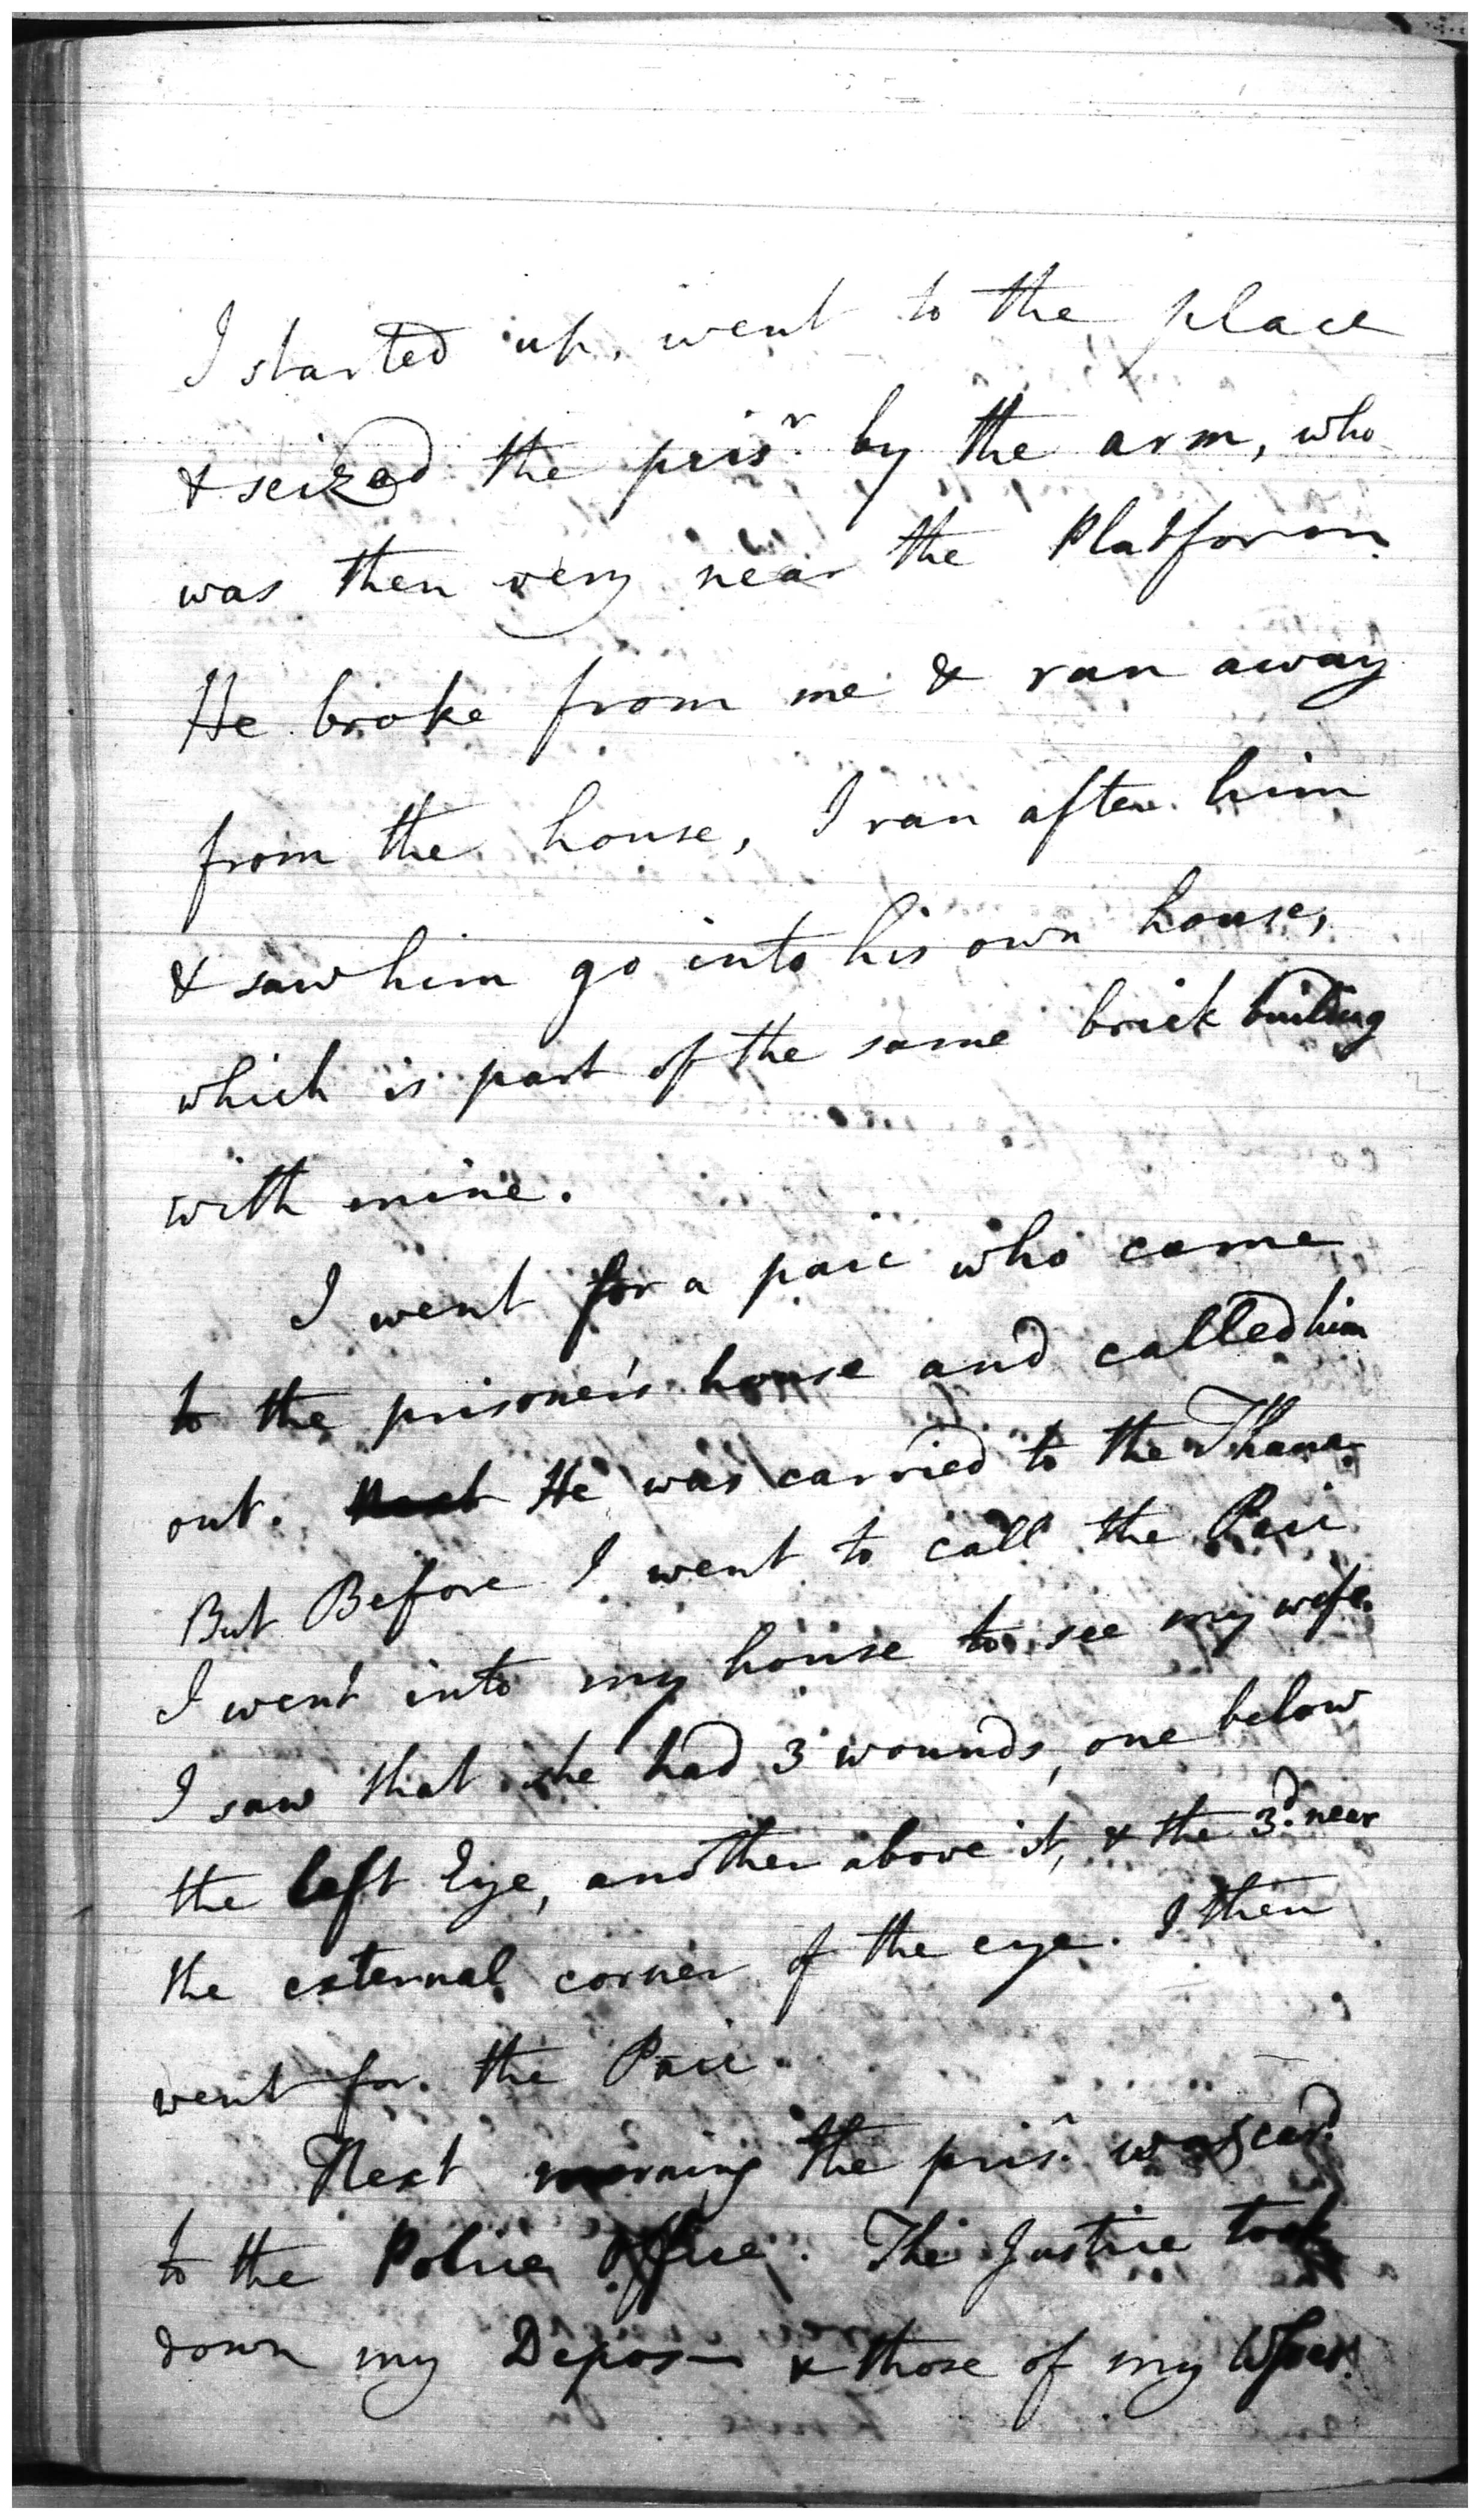 I started up, went to the place
& seized the pris^r. by the arm, who
was then very near the Platform.
He broke from me & ran away
from the house, I ran after him
& saw him go into his own house,
which is part of the same brick building
with mine.
I went for a paic who came
to the prisoner's house and called him
out. He was carried to the Thana.
But Before I went to call the Paic
I went into my house to see my wife.
I saw that she had 3 wounds, one below
the left Eye, another above it, & the 3^d. near
the external corner of the eye. I then
went for the Paic.
Next morning the pris^r. was car^d.
to the Police Office. The Justice took
down my Depos— & those of my